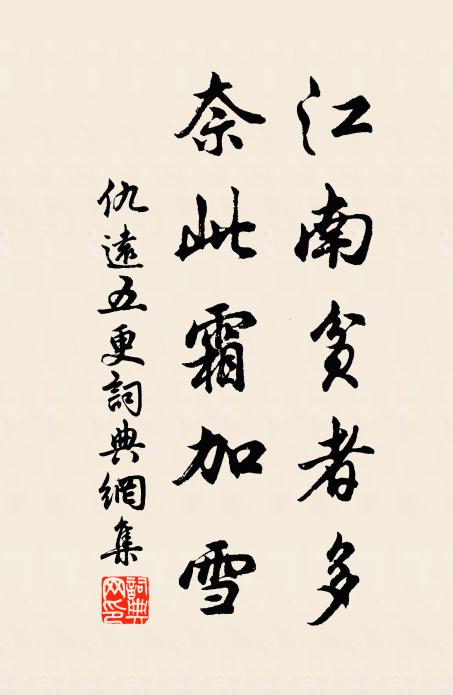 江南貧者多
奈此霜加雪
仇遠五更詞典網集
詞典网印